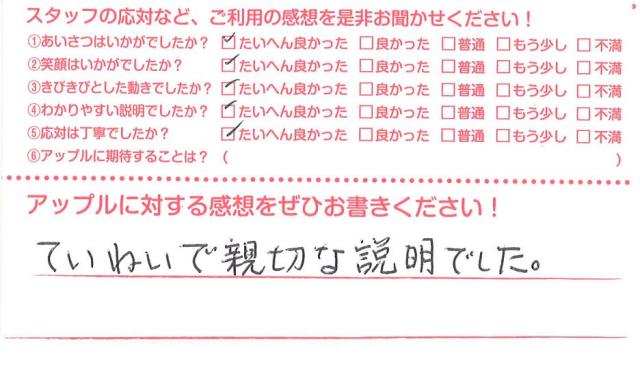 スタッフの応対など、ご利用の感想を是非お聞かせください！
①あいさつはいかがでしたか？ ☑たいへん良かった □良かった □普通 □もう少し □不満
②笑顔はいかがでしたか？ ☑たいへん良かった □良かった □普通 □もう少し □不満
③きびきびとした動きでしたか？ ☑たいへん良かった □良かった □普通 □もう少し □不満
④わかりやすい説明でしたか？ ☑たいへん良かった □良かった □普通 □もう少し □不満
⑤応対は丁寧でしたか？ ☑たいへん良かった □良かった □普通 □もう少し □不満
⑥アップルに期待することは？（ ）
アップルに対する感想をぜひお書きください！
ていねいで親切な説明でした。